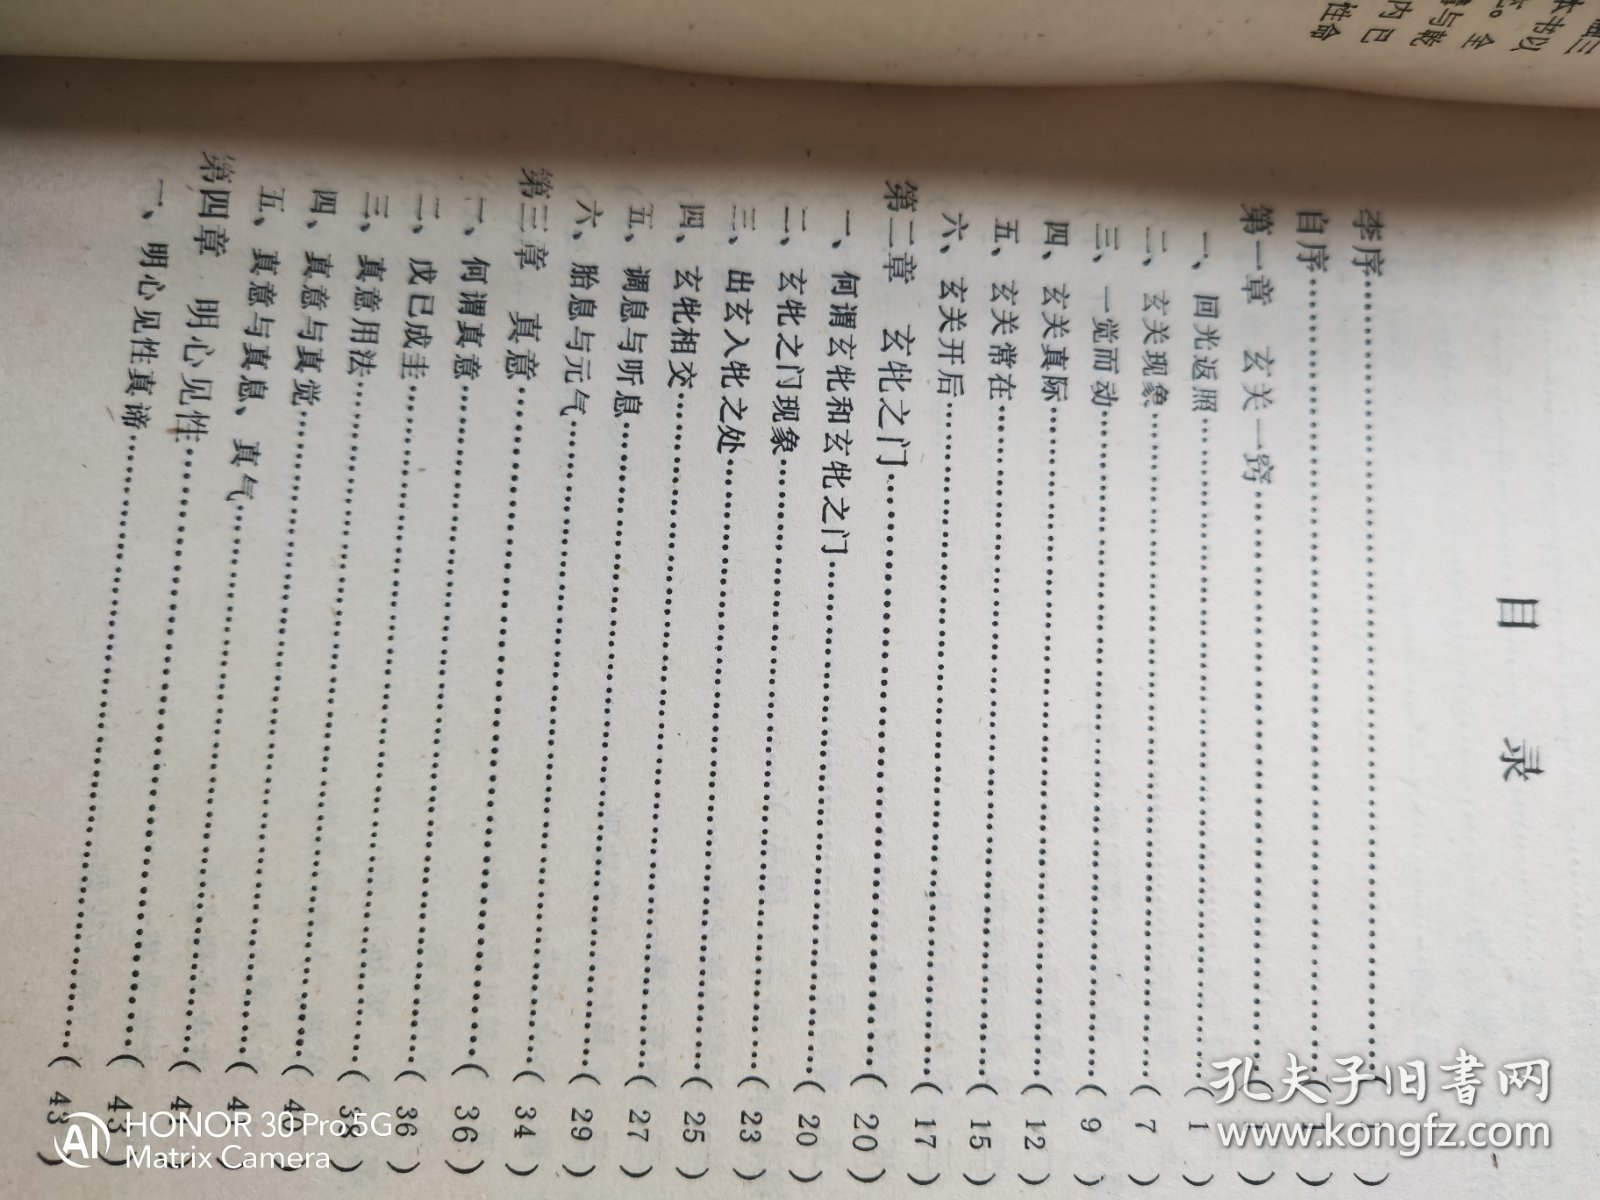 目 录
李序……(1)
自序……(1)
第一章 玄关一窍……(1)
一、回光返照……(1)
二、玄关现象……(7)
三、一觉而动……(9)
四、玄关真际……(12)
五、玄关常在……(15)
六、玄关开后……(17)
第二章 玄牝之门……(20)
一、何谓玄牝和玄牝之门……(20)
二、玄牝之门现象……(23)
三、出玄入牝之处……(25)
四、玄牝相交……(27)
五、调息与听息……(29)
六、胎息与元气……(34)
第三章 真意……(36)
一、何谓真意……(36)
二、戊己成圭……(38)
三、真意用法……(40)
四、真意与真觉……
五、真意与真息、真气……
第四章 明心见性……(43)
一、明心见性真谛……(43)
孔夫子旧书网
www.kongfz.com
AI HONOR 30 Pro 5G
Matrix Camera